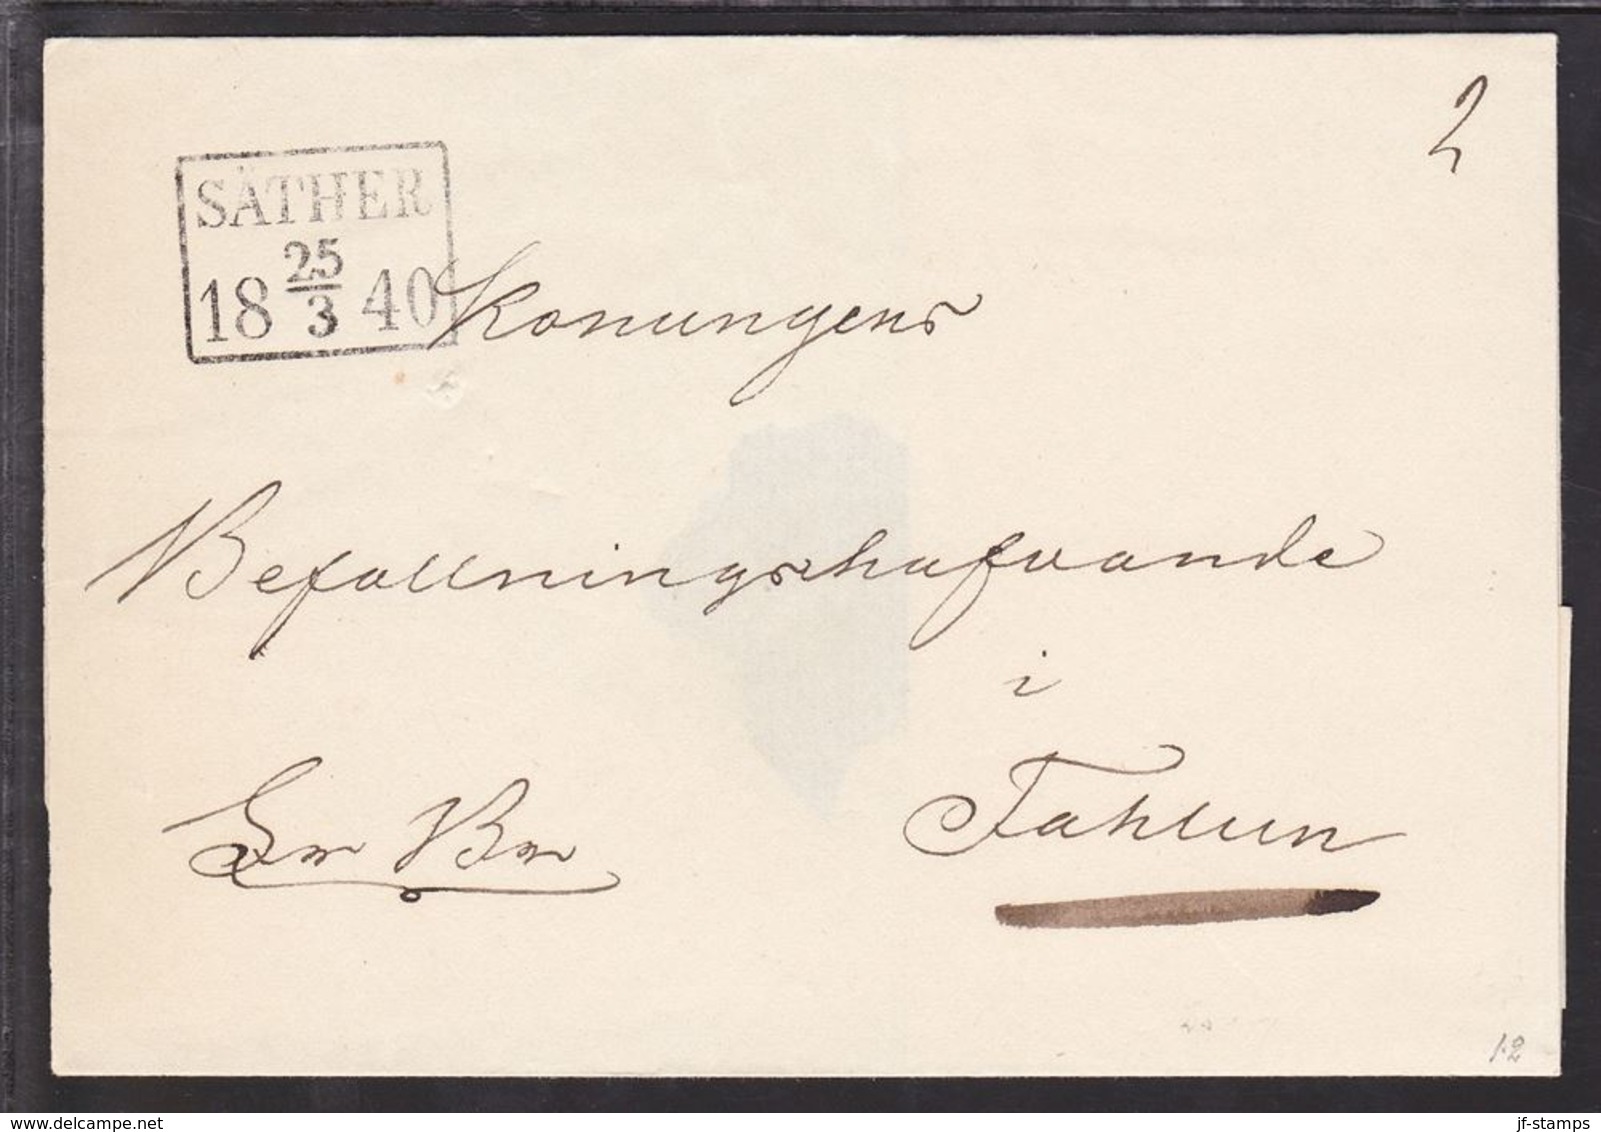 2
SÄTHER
18 25/3 40
Konungens
Befallningshafvande
i
Fahlun
1.2
delcampe.net
jf-stamps